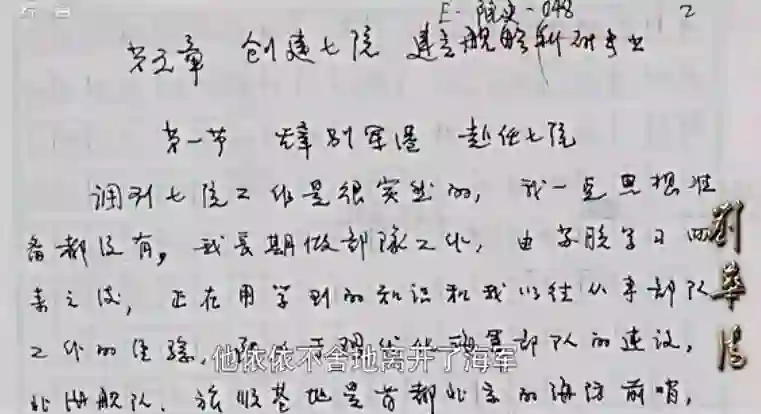 E·院史-048 2
第五章 创建七院 建立舰船科研专业
第一节 告别军港 赴任七院
调到七院工作是很突然的，我一点思想准
备都没有，我长期做部队工作，由苏联学习回
来之后，正在用学到的知识和我以往从事部队
工作的经验，部队的建设，
北海舰队、旅顺基地是首都北京的海防前哨，
他依依不舍地离开了海军
刘华清